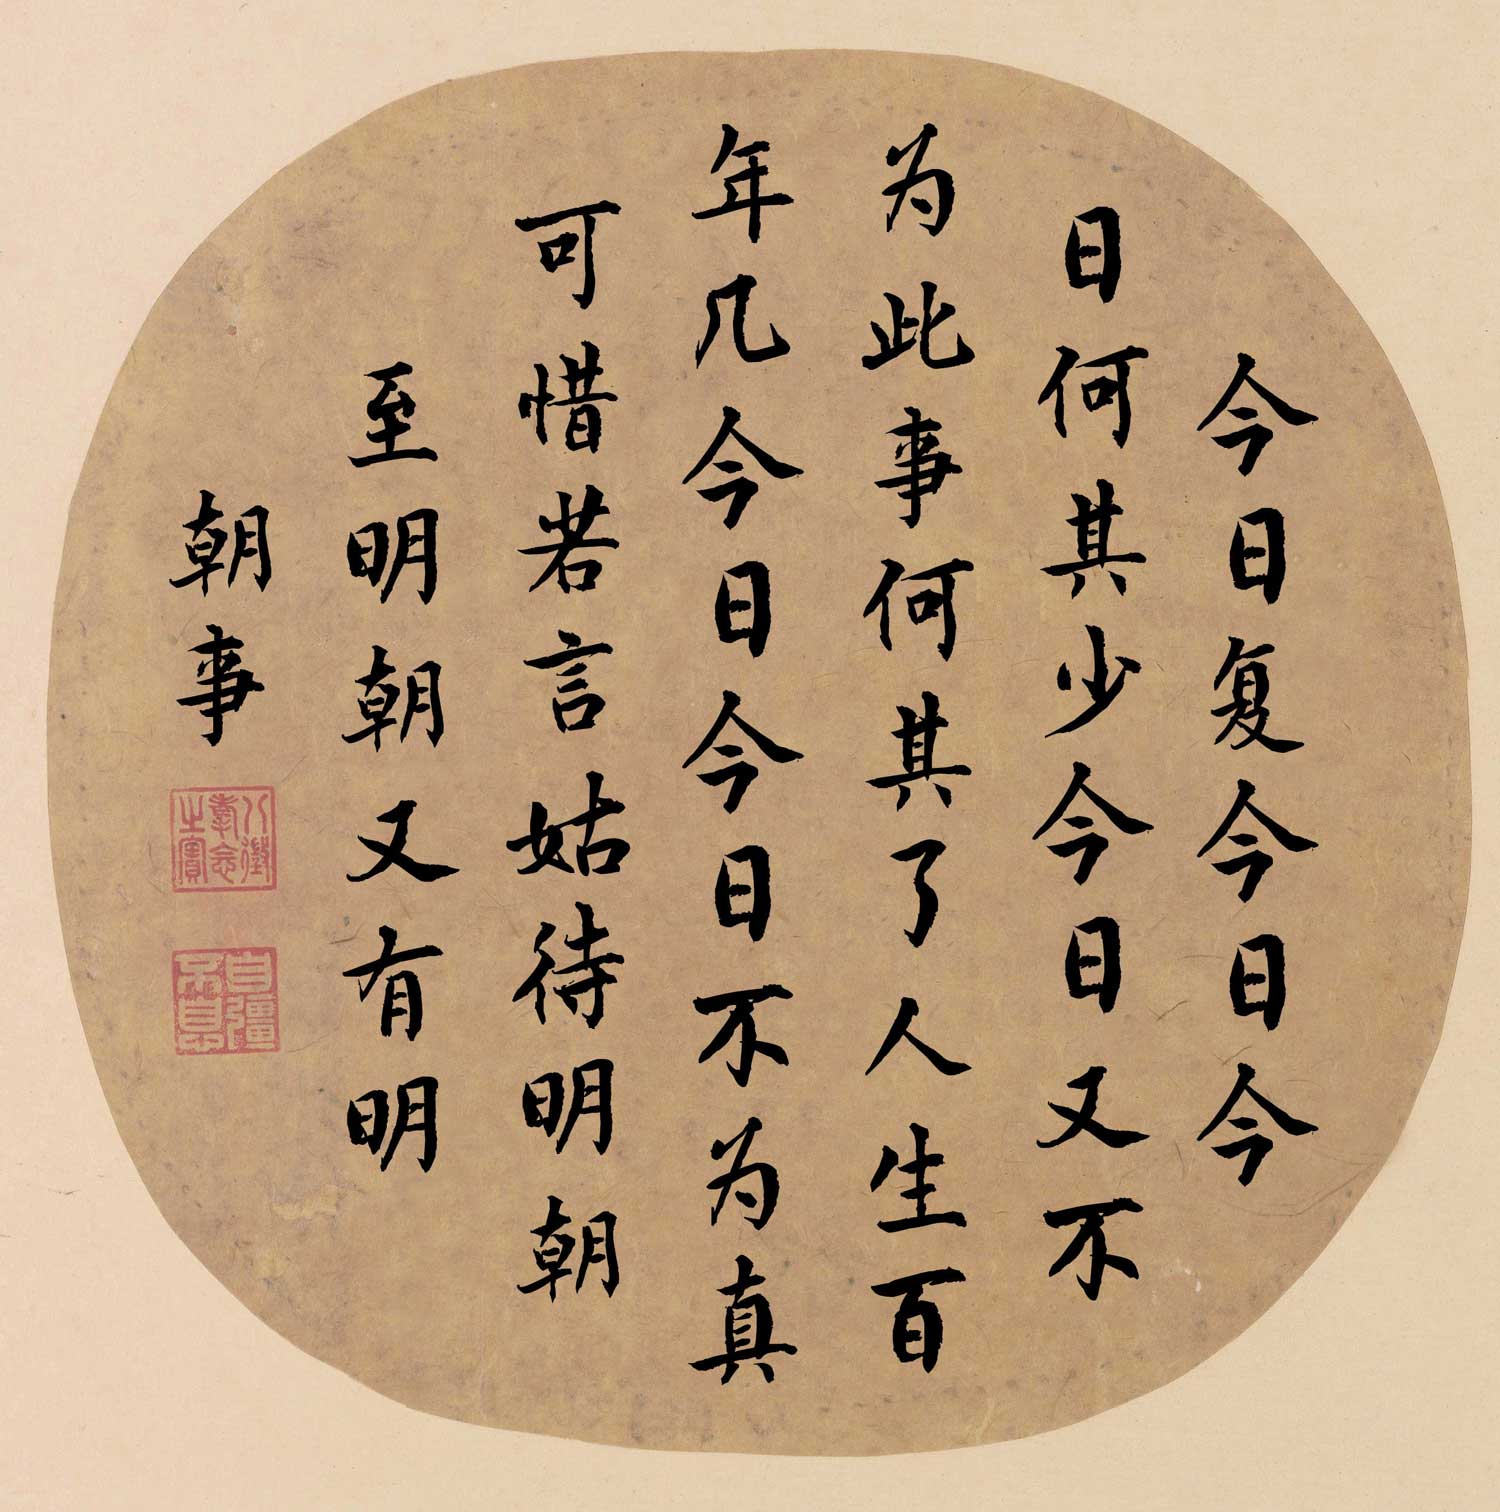 今日复今日今
日何其少今日又不
为此事何其了人生百
年几今日今日不为真
可惜若言姑待明朝
至明朝又有明
朝事
八徵
耄念
之寶
自彊
不息